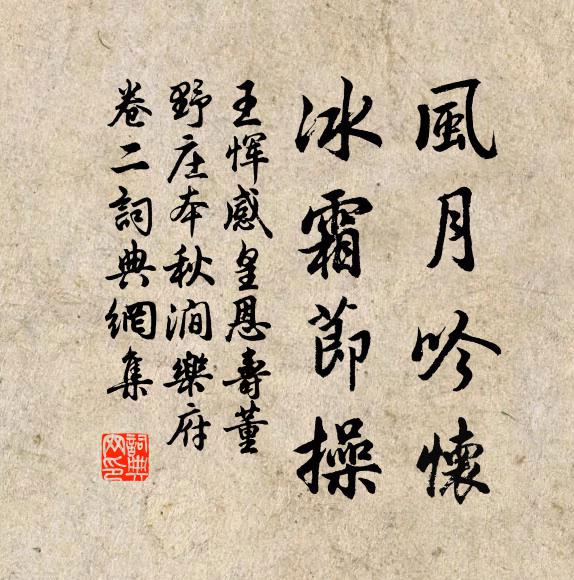 風月吟懷
冰霜節操
王惲感皇恩壽董
野庄本秋澗樂府
卷二詞典網集
詞典
网印